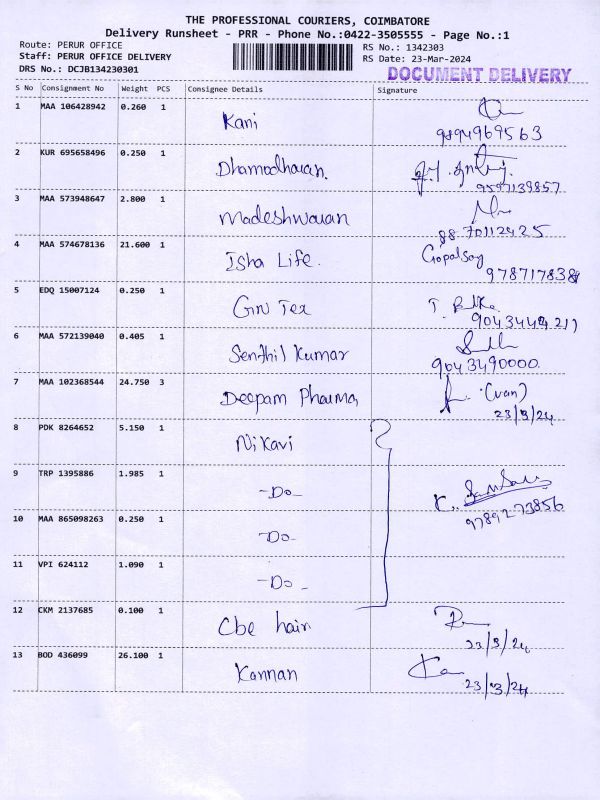 THE PROFESSIONAL COURIERS, COIMBATORE
Delivery Runsheet - PRR - Phone No.:0422-3505555 - Page No.:1
Route: PERUR OFFICE
RS No.: 1342303
Staff: PERUR OFFICE DELIVERY
RS Date: 23-Mar-2024
DRS No.: DCJB134230301
DOCUMENT DELIVERY
S No Consignment No Weight PCS Consignee Details Signature
1 MAA 106428942 0.260 1 Kani
9894969563
2 KUR 695658496 0.250 1 Dhamodharan.
9597139857
3 MAA 573948647 2.800 1 Madeshwaran
88 70112425
4 MAA 574678136 21.600 1 Isha Life. Gopalsay
978717838
5 EDQ 15007124 0.250 1 Gru Tex
6 MAA 572139040 0.405 1 Senthil Kumar
9043490000
7 MAA 102368544 24.750 3 Deepam Pharma (van)
23/3/24
8 PDK 8264652 5.150 1 Nikavi
9 TRP 1395886 1.985 1 -Do-
9789273856
10 MAA 865098263 0.250 1 -Do-
11 VPI 624112 1.090 1 -Do-
12 CKM 2137685 0.100 1 Cbe hair
23/3/24
13 BOD 436099 26.100 1 Kannan
23/3/24